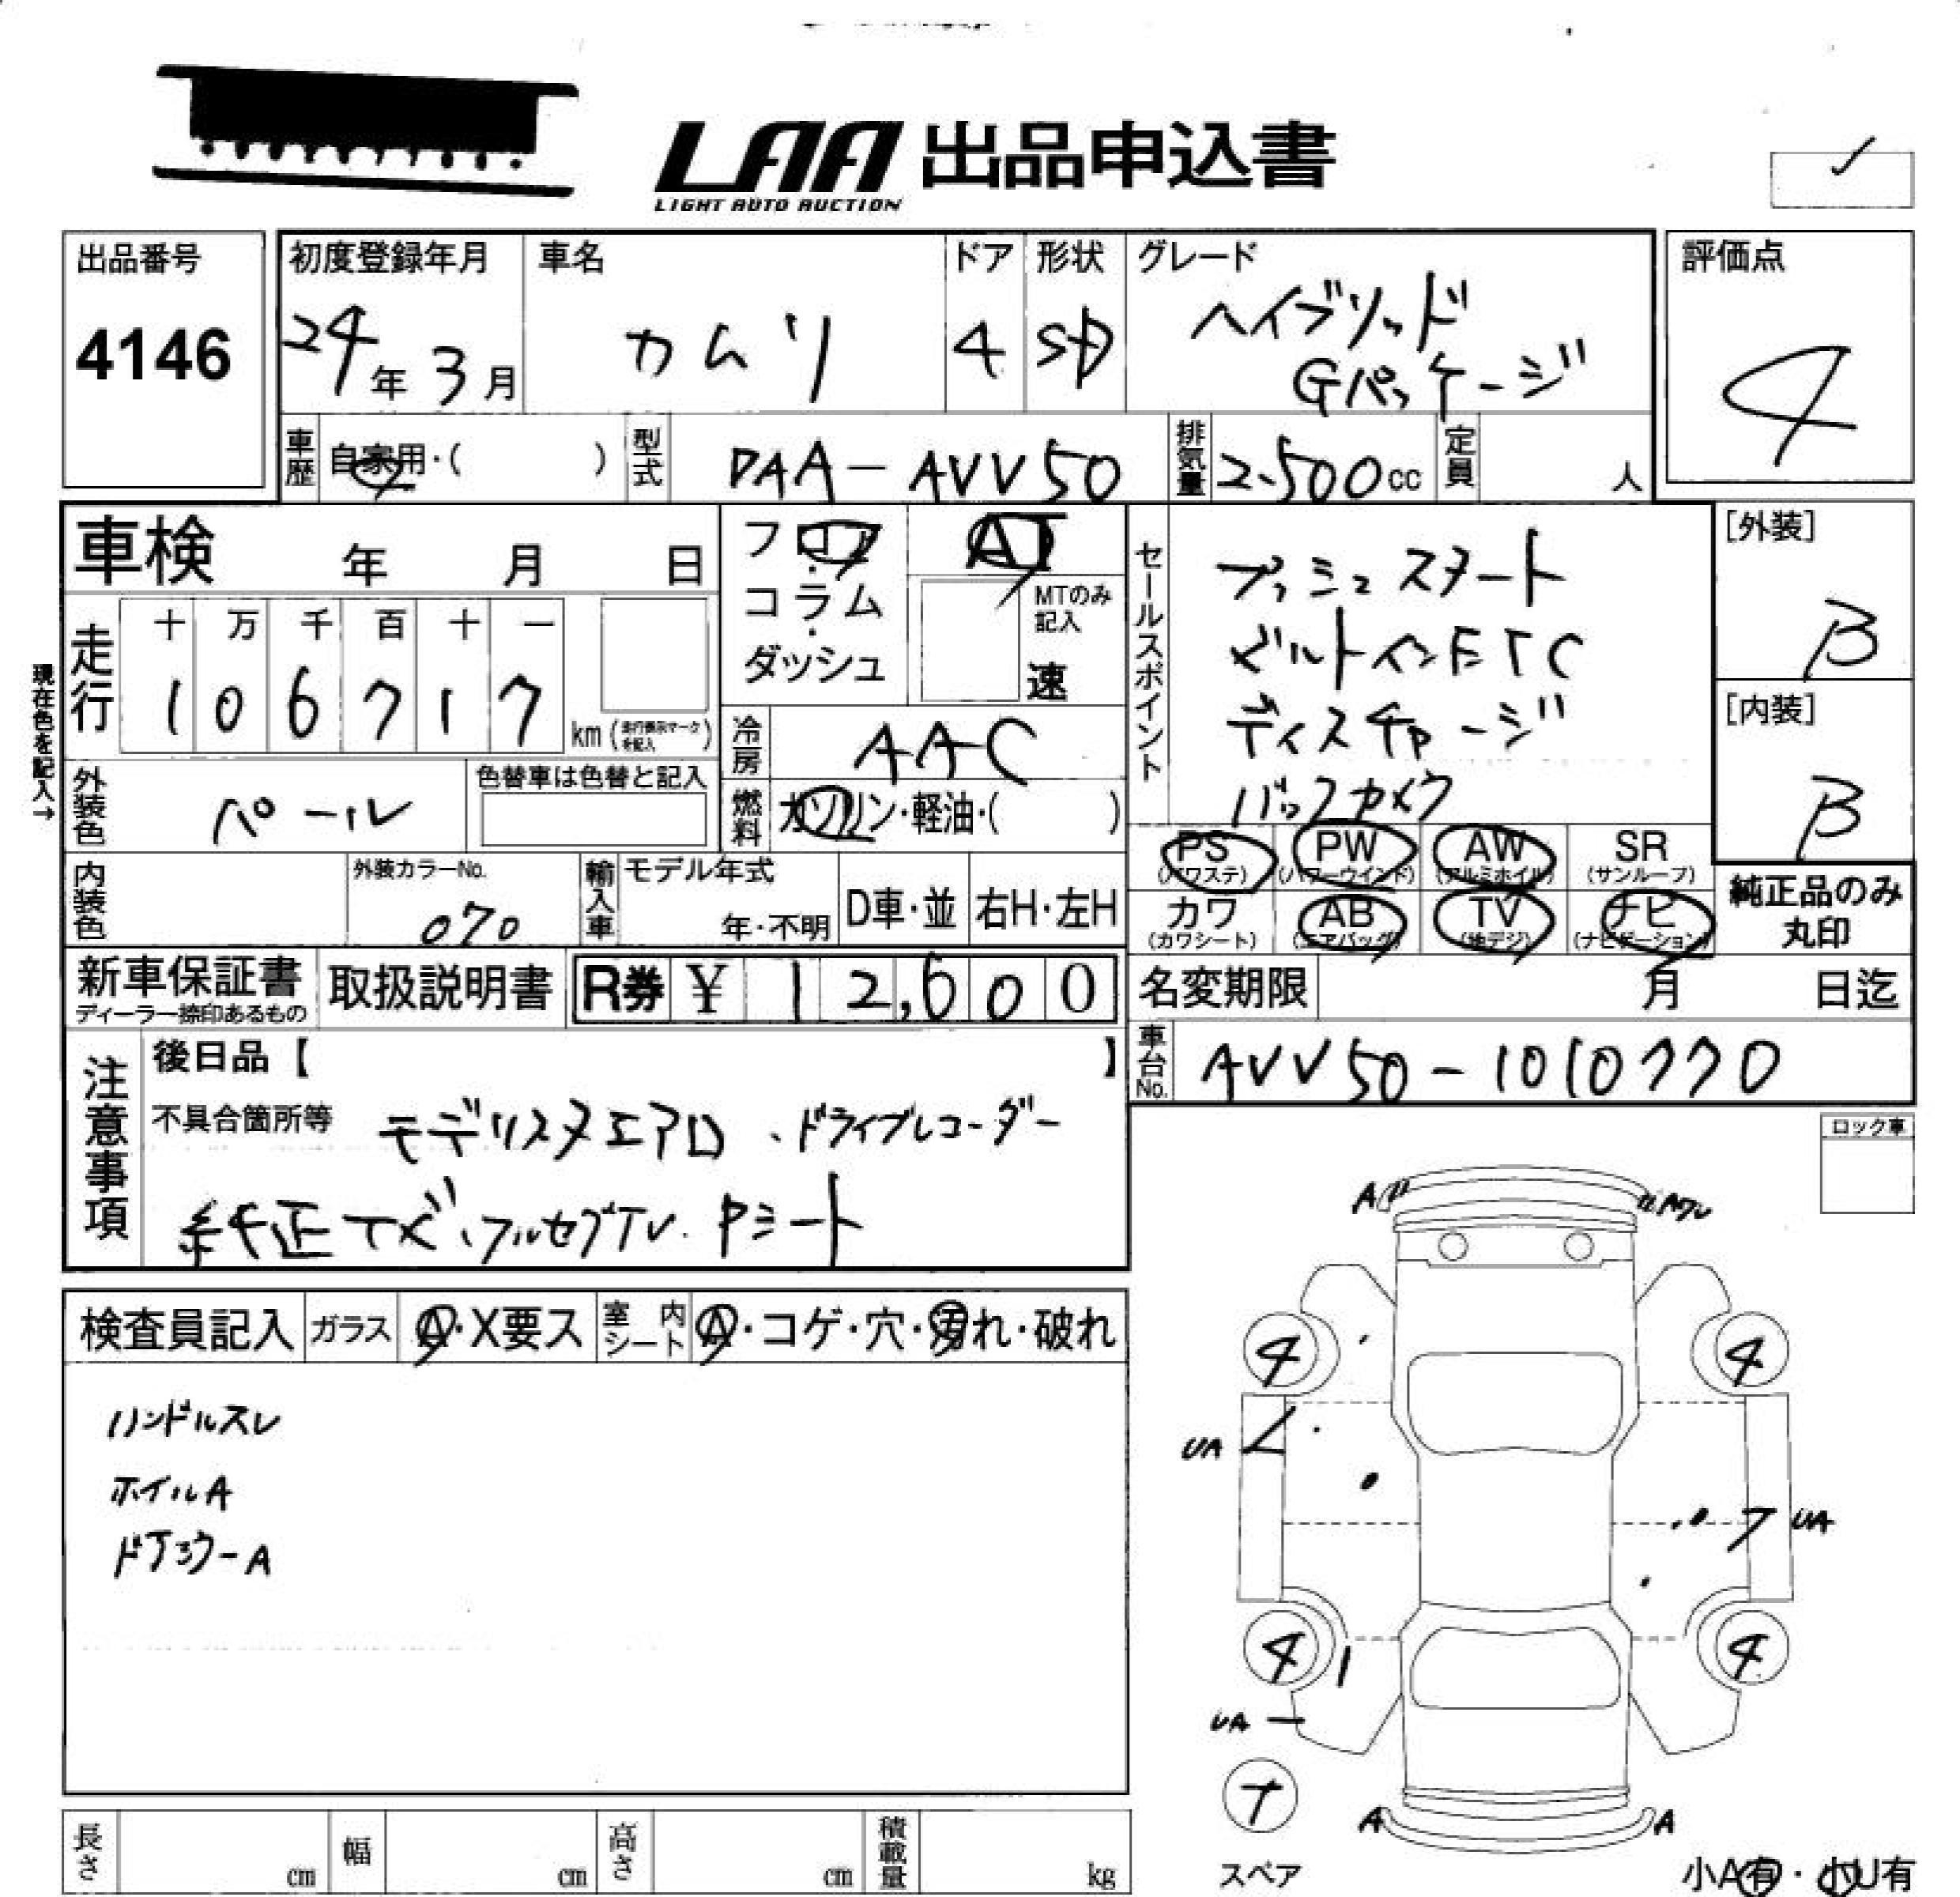 LAA 出品申込書
LIGHT AUTO AUCTION
出品番号
4146
初度登録年月
24年 3月
車名
カムリ
ドア
4
形状
SD
グレード
ハイブリッド
Gパッケージ
評価点
4
車歴 自家用・( )
型式 DAA-AVV50
排気量 2.500cc
定員 人
車検 年 月 日
走行 十 万 千 百 十 一
1 0 6 7 1 7 km (走行表示マークを記入)
現在色を記入→
フロア・コラム・ダッシュ
AT
MTのみ記入
速
冷房 AAC
燃料 ガソリン・軽油・( )
外装色 パール
色替車は色替と記入
内装色
外装カラーNo.
070
輸入車 モデル年式
年・不明
D車・並
右H・左H
セールスポイント
プッシュスタート
ビルトインETC
ディスチャージ
バックカメラ
[外装]
B
[内装]
B
PS (パワステ)
PW (パワーウインド)
AW (アルミホイル)
SR (サンルーフ)
カワ (カワシート)
AB (エアバッグ)
TV (地デジ)
ナビ (ナビゲーション)
純正品のみ丸印
新車保証書
ディーラー捺印あるもの
取扱説明書
R券 ¥ 12,600
名変期限 月 日迄
車台No. AVV50-1010770
注意事項
後日品【 】
不具合箇所等 モデリスタエアロ、ドライブレコーダー
純正ナビ、フルセグTV. Pシート
ロック車
検査員記入
ガラス A・X要ス
室内シート A・コゲ・穴・汚れ・破れ
ハンドルスレ
ホイルA
ドアミラーA
A
4 4
UA
UA
4 4
UA
T
スペア
A A
小A有・小U有
長さ cm
幅 cm
高さ cm
積載量 kg